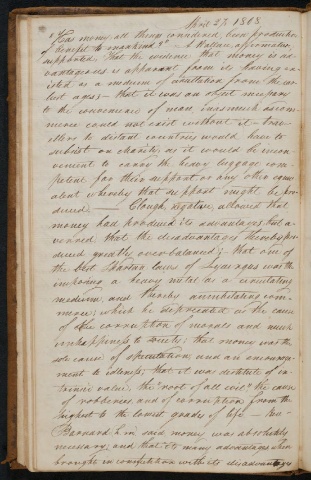 April 27. 1808
"Has money, all things considered, been productive
of benefit to mankind?" – A Wallace, affirmative,
supported that the evidence that money is ad-
vantageous is apparent from its having ex-
isted as a medium of circulation from the ear-
liest ages – that it was an object necessary
to the convenience of man inasmuch as com-
merce could not exist without it – trav-
ellers to distant countries would have to
subsist on charity, as it would be incon-
venient to carry the heavy luggage com-
petent for their support or any other equiv-
alent whereby that support might be pro-
duced. — Clough, negative, allowed that
money had produced its advantages, but a-
verred, that the disadvantages thereby pro-
duced greatly overbalanced; – that one of
the best Spartan laws of Lycurgus was the
imposing a heavy metal as a circulating
medium, and thereby annihilating com-
merce; which he deprecated as the cause
of the corruption of morals and much
unhappiness to society; that money was the
sole cause of speculation, and an encourage-
ment to idleness; that it was destitute of in-
trinsic value, the "root of all evil" the cause
of robberies, and of corruption from the
highest to the lowest grades of life – Rev
Barnard h.m. said money was absolutely
necessary; and that its many advantages when
brought in competition with its disadvantages